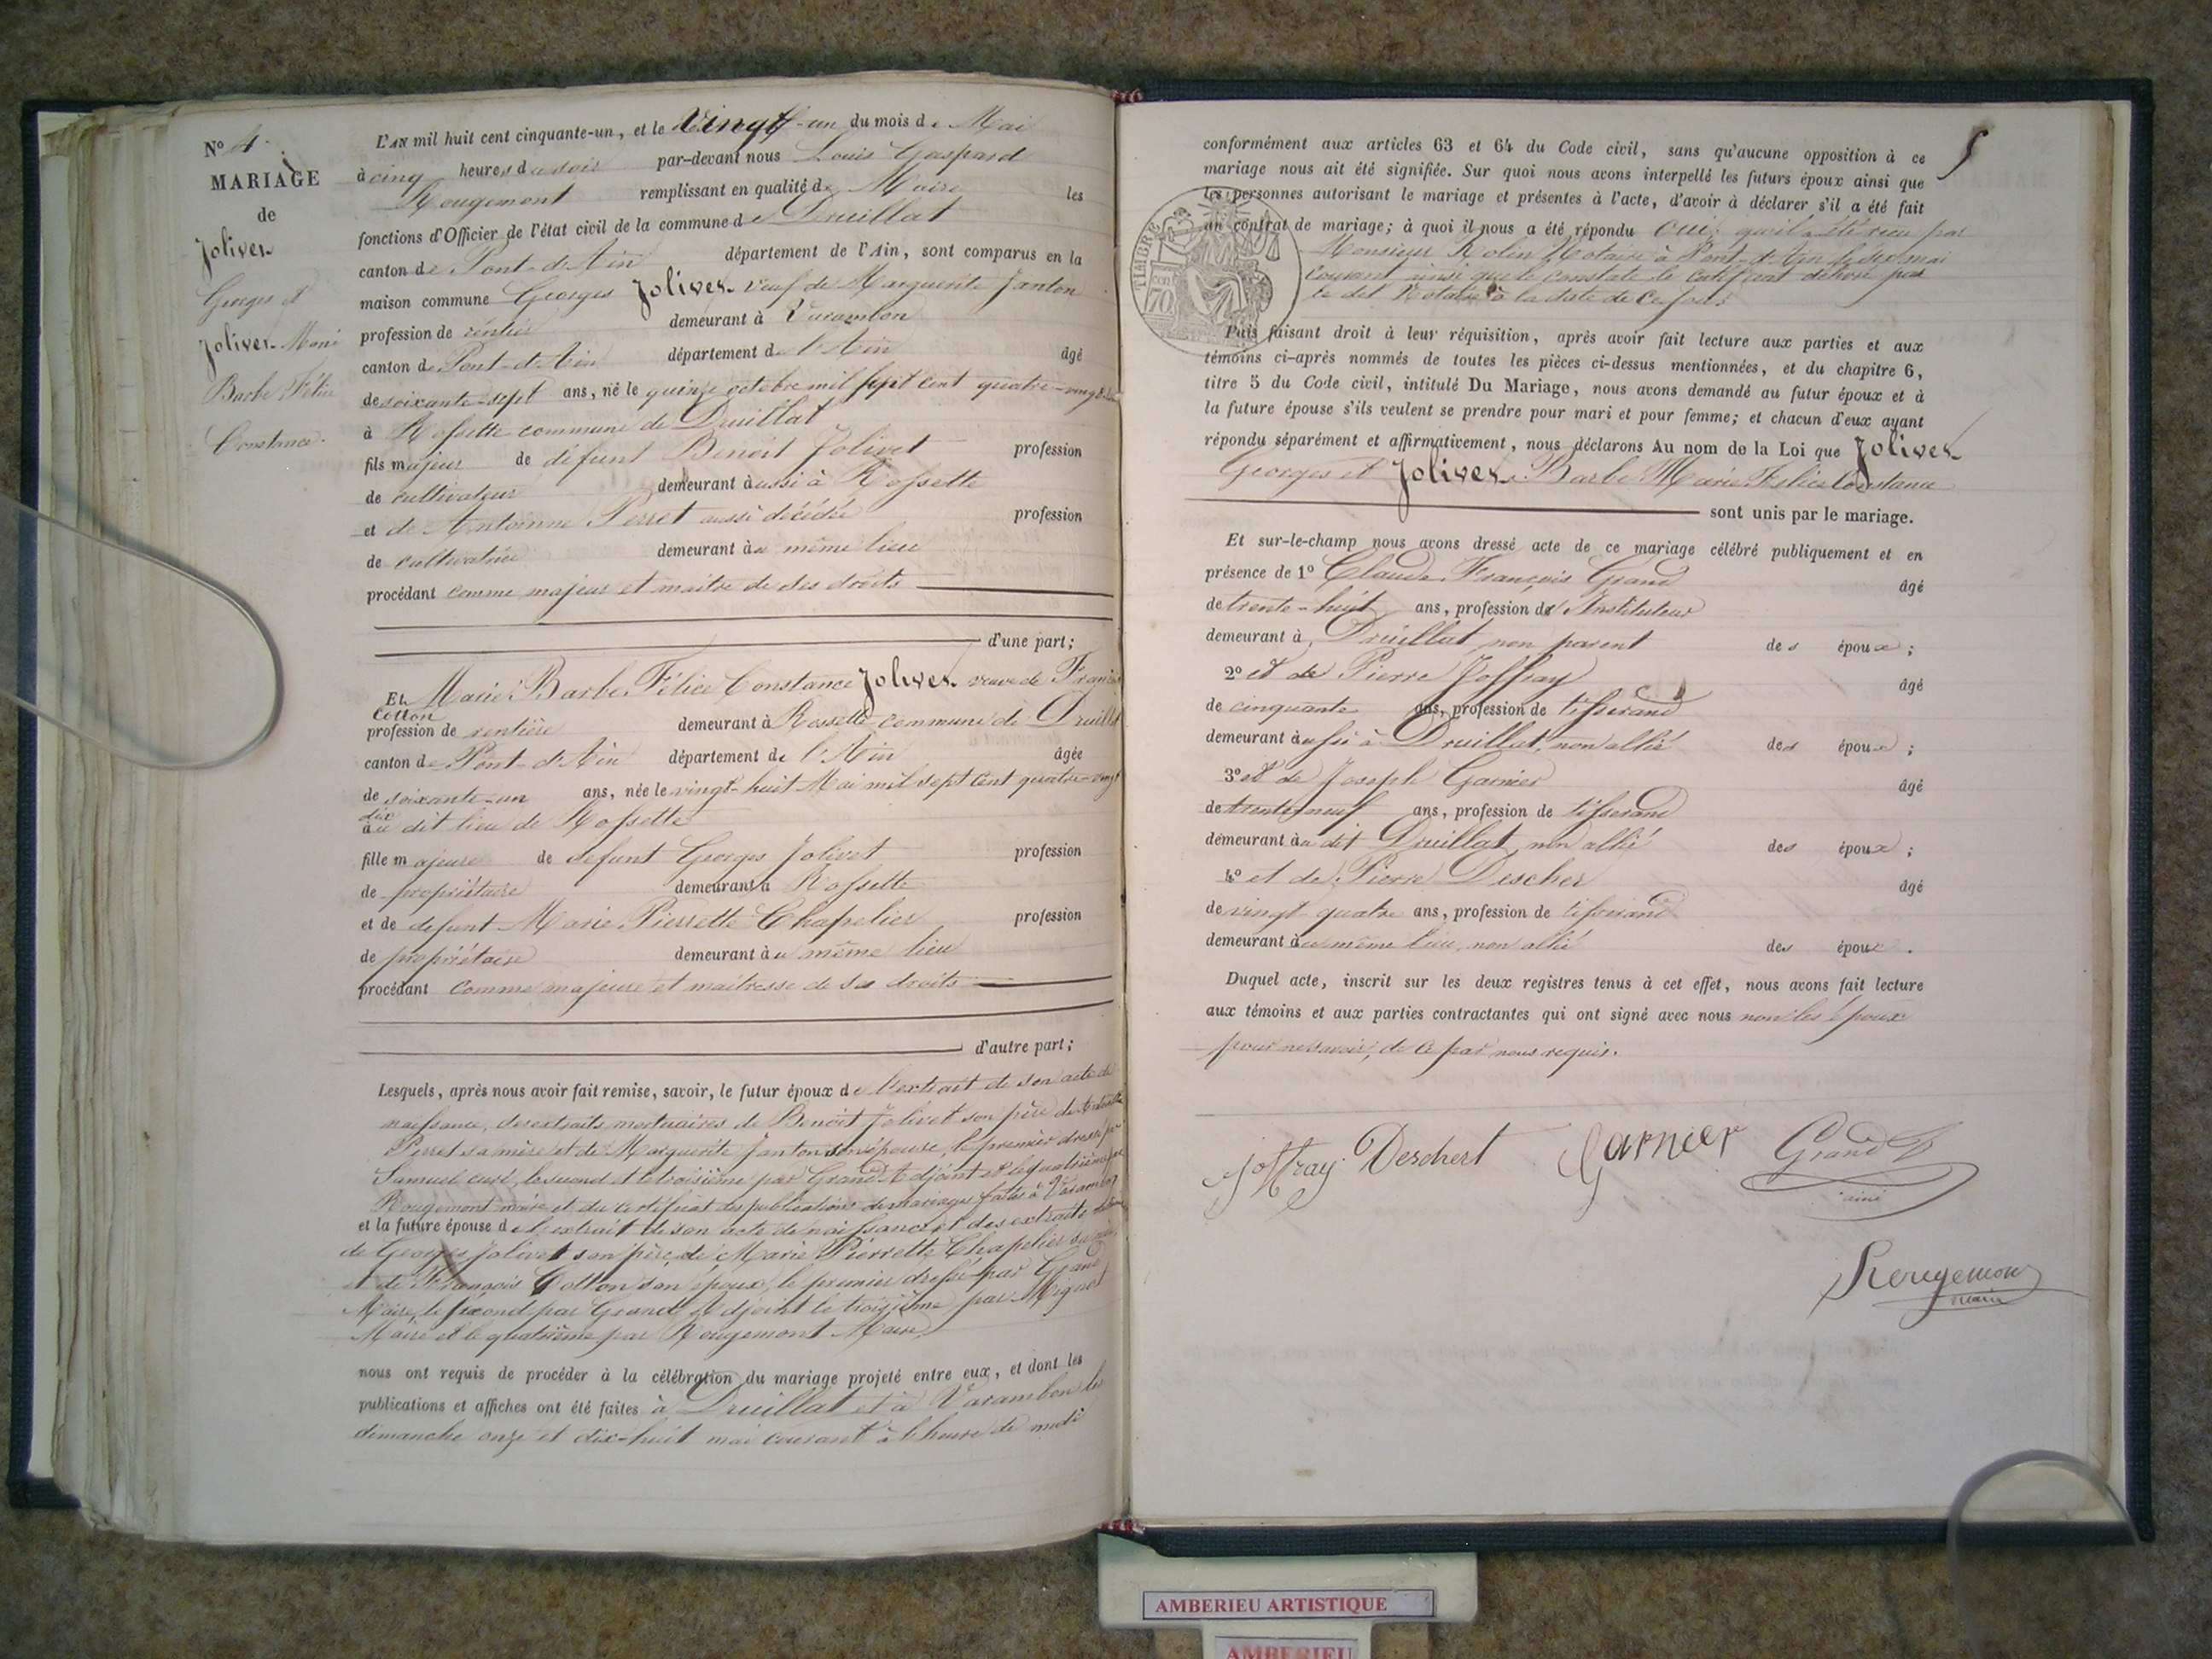 N° 4.
MARIAGE
de
Jolivet
Georges et
Jolivet Marie
Barbe Félice
Constance.
L'AN mil huit cent cinquante-un, et le vingt-un du mois de Mai
à cinq heures du soir par-devant nous Louis Gaspard
Rougemont remplissant en qualité de Maire les
fonctions d'Officier de l'état civil de la commune de Druillat
canton de Pont-d'Ain département de l'Ain, sont comparus en la
maison commune Georges Jolivet veuf de Marguerite Janton
profession de rentier demeurant à Varambon
canton de Pont-d'Ain département de l'Ain âgé
de soixante-sept ans, né le quinze octobre mil sept cent quatre-vingt
à Rossette commune de Druillat
fils majeur de défunt Benoit Jolivet profession
de cultivateur demeurant aussi à Rossette
et de Antoinne Perret aussi décédée profession
de cultivatrice demeurant au même lieu
procédant comme majeur et maitre de ses droits
d'une part;
Et Marie Barbe Félice Constance Jolivet veuve de François
Cotton
profession de rentière demeurant à Rossette commune de Druillat
canton de Pont-d'Ain département de l'Ain âgée
de soixante-un ans, née le vingt-huit Mai mil sept cent quatre-vingt
dix
au dit lieu de Rossette
fille majeure de défunt Georges Jolivet profession
de propriétaire demeurant à Rossette
et de defunt Marie Pierrette Chapelier profession
de propriétaire demeurant au même lieu
procédant comme majeure et maitresse de ses droits
d'autre part;
Lesquels, après nous avoir fait remise, savoir, le futur époux de l'extrait de son acte de
naissance, des extraits mortuaires de Benoit Jolivet son père de
Perret sa mère et de Marguerite Janton son épouse, le premier dressé par
Samuel curé, le second et le troisième par Grand Adjoint et le quatrième par
Rougemont maire et du certificat des publications de mariages faites à Varambon
et la future épouse de l'extrait de son acte de naissance et des extraits
de Georges Jolivet son père, de Marie Pierrette Chapelier sa mère
et de François Cotton son époux, le premier dressé par Grand
Maire, le second par Grand Adjoint le troisième par Mignot
Maire et le quatrième par Rougemont Maire,
nous ont requis de procéder à la célébration du mariage projeté entre eux, et dont les
publications et affiches ont été faites à Druillat et à Varambon les
dimanche onze et dix-huit mai courant à l'heure de midi
conformément aux articles 63 et 64 du Code civil, sans qu'aucune opposition à ce
mariage nous ait été signifiée. Sur quoi nous avons interpellé les futurs époux ainsi que
les personnes autorisant le mariage et présentes à l'acte, d'avoir à déclarer s'il a été fait
un contrat de mariage; à quoi il nous a été répondu oui, qu'il a été reçu par
Monsieur Rolin Notaire à Pont-d'Ain le six mai
courant ainsi que le constate le certificat délivré par
le dit Notaire à la date de ce jour.
TIMBRE
70
Puis faisant droit à leur réquisition, après avoir fait lecture aux parties et aux
témoins ci-après nommés de toutes les pièces ci-dessus mentionnées, et du chapitre 6,
titre 5 du Code civil, intitulé Du Mariage, nous avons demandé au futur époux et à
la future épouse s'ils veulent se prendre pour mari et pour femme; et chacun d'eux ayant
répondu séparément et affirmativement, nous déclarons Au nom de la Loi que Jolivet
Georges et Jolivet Barbe Marie Félice Constance
sont unis par le mariage.
Et sur-le-champ nous avons dressé acte de ce mariage célébré publiquement et en
présence de 1° Claude François Grand âgé
de trente-huit ans, profession de Instituteur
demeurant à Druillat non parent des époux;
2° et de Pierre Joffray âgé
de cinquante ans, profession de tisserand
demeurant aussi à Druillat, non allié des époux;
3° et de Joseph Garnier âgé
de trente-neuf ans, profession de tisserand
demeurant au dit Druillat non allié des époux;
4° et de Pierre Descher âgé
de vingt-quatre ans, profession de tisserand
demeurant au même lieu, non allié des époux.
Duquel acte, inscrit sur les deux registres tenus à cet effet, nous avons fait lecture
aux témoins et aux parties contractantes qui ont signé avec nous non les époux
pour ne savoir, de ce par nous requis.
Joffray Deschert Garnier Grand
ainé
Rougemont
maire
AMBERIEU ARTISTIQUE
AMBERIEU